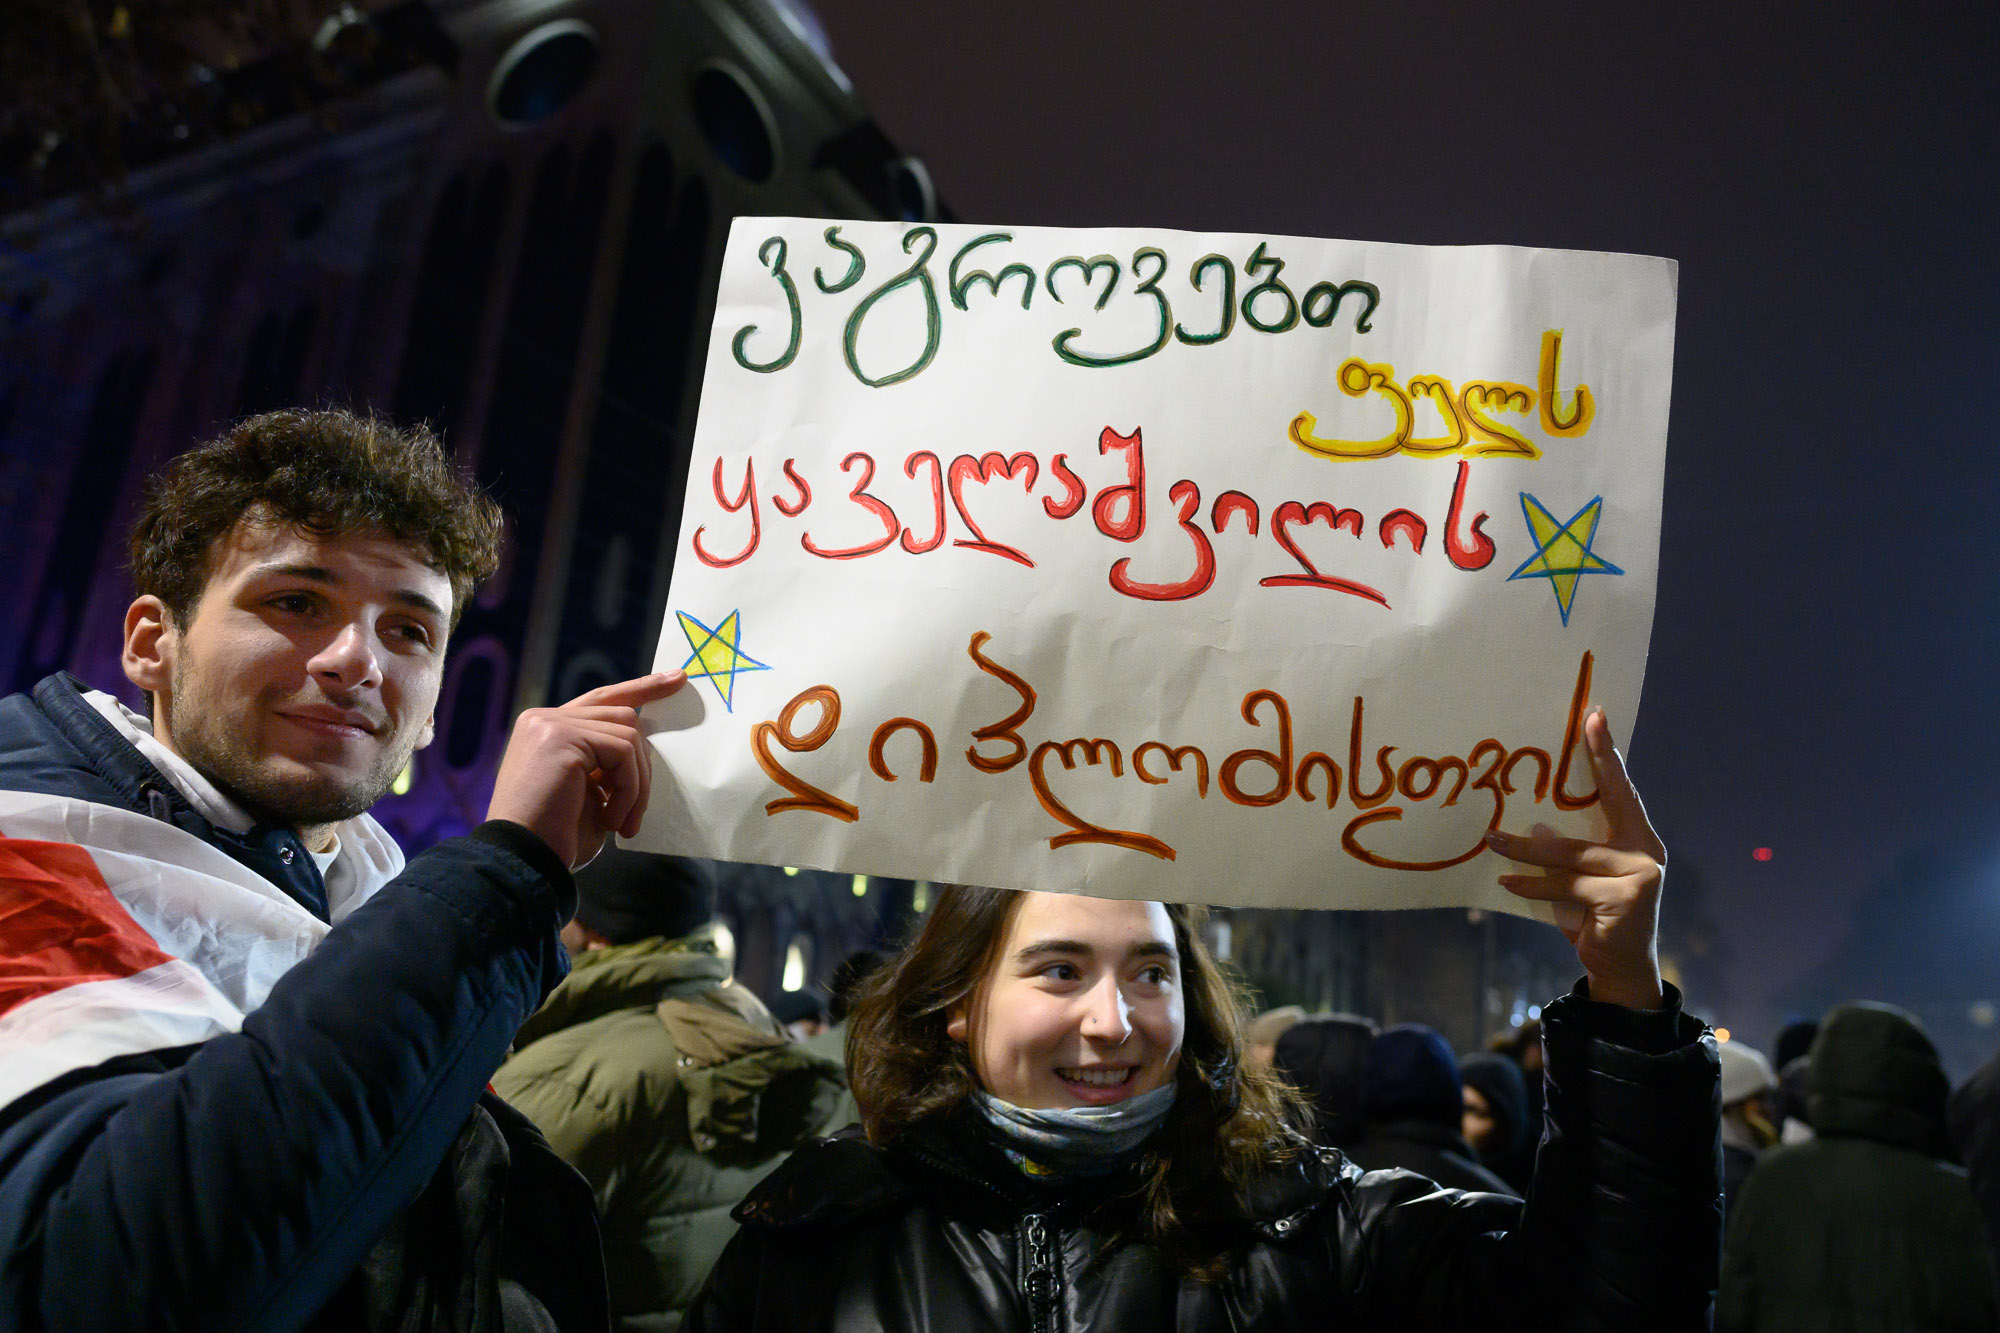 ვაგროვებთ
ფულს
ყაველაშვილის
დიპლომისთვის